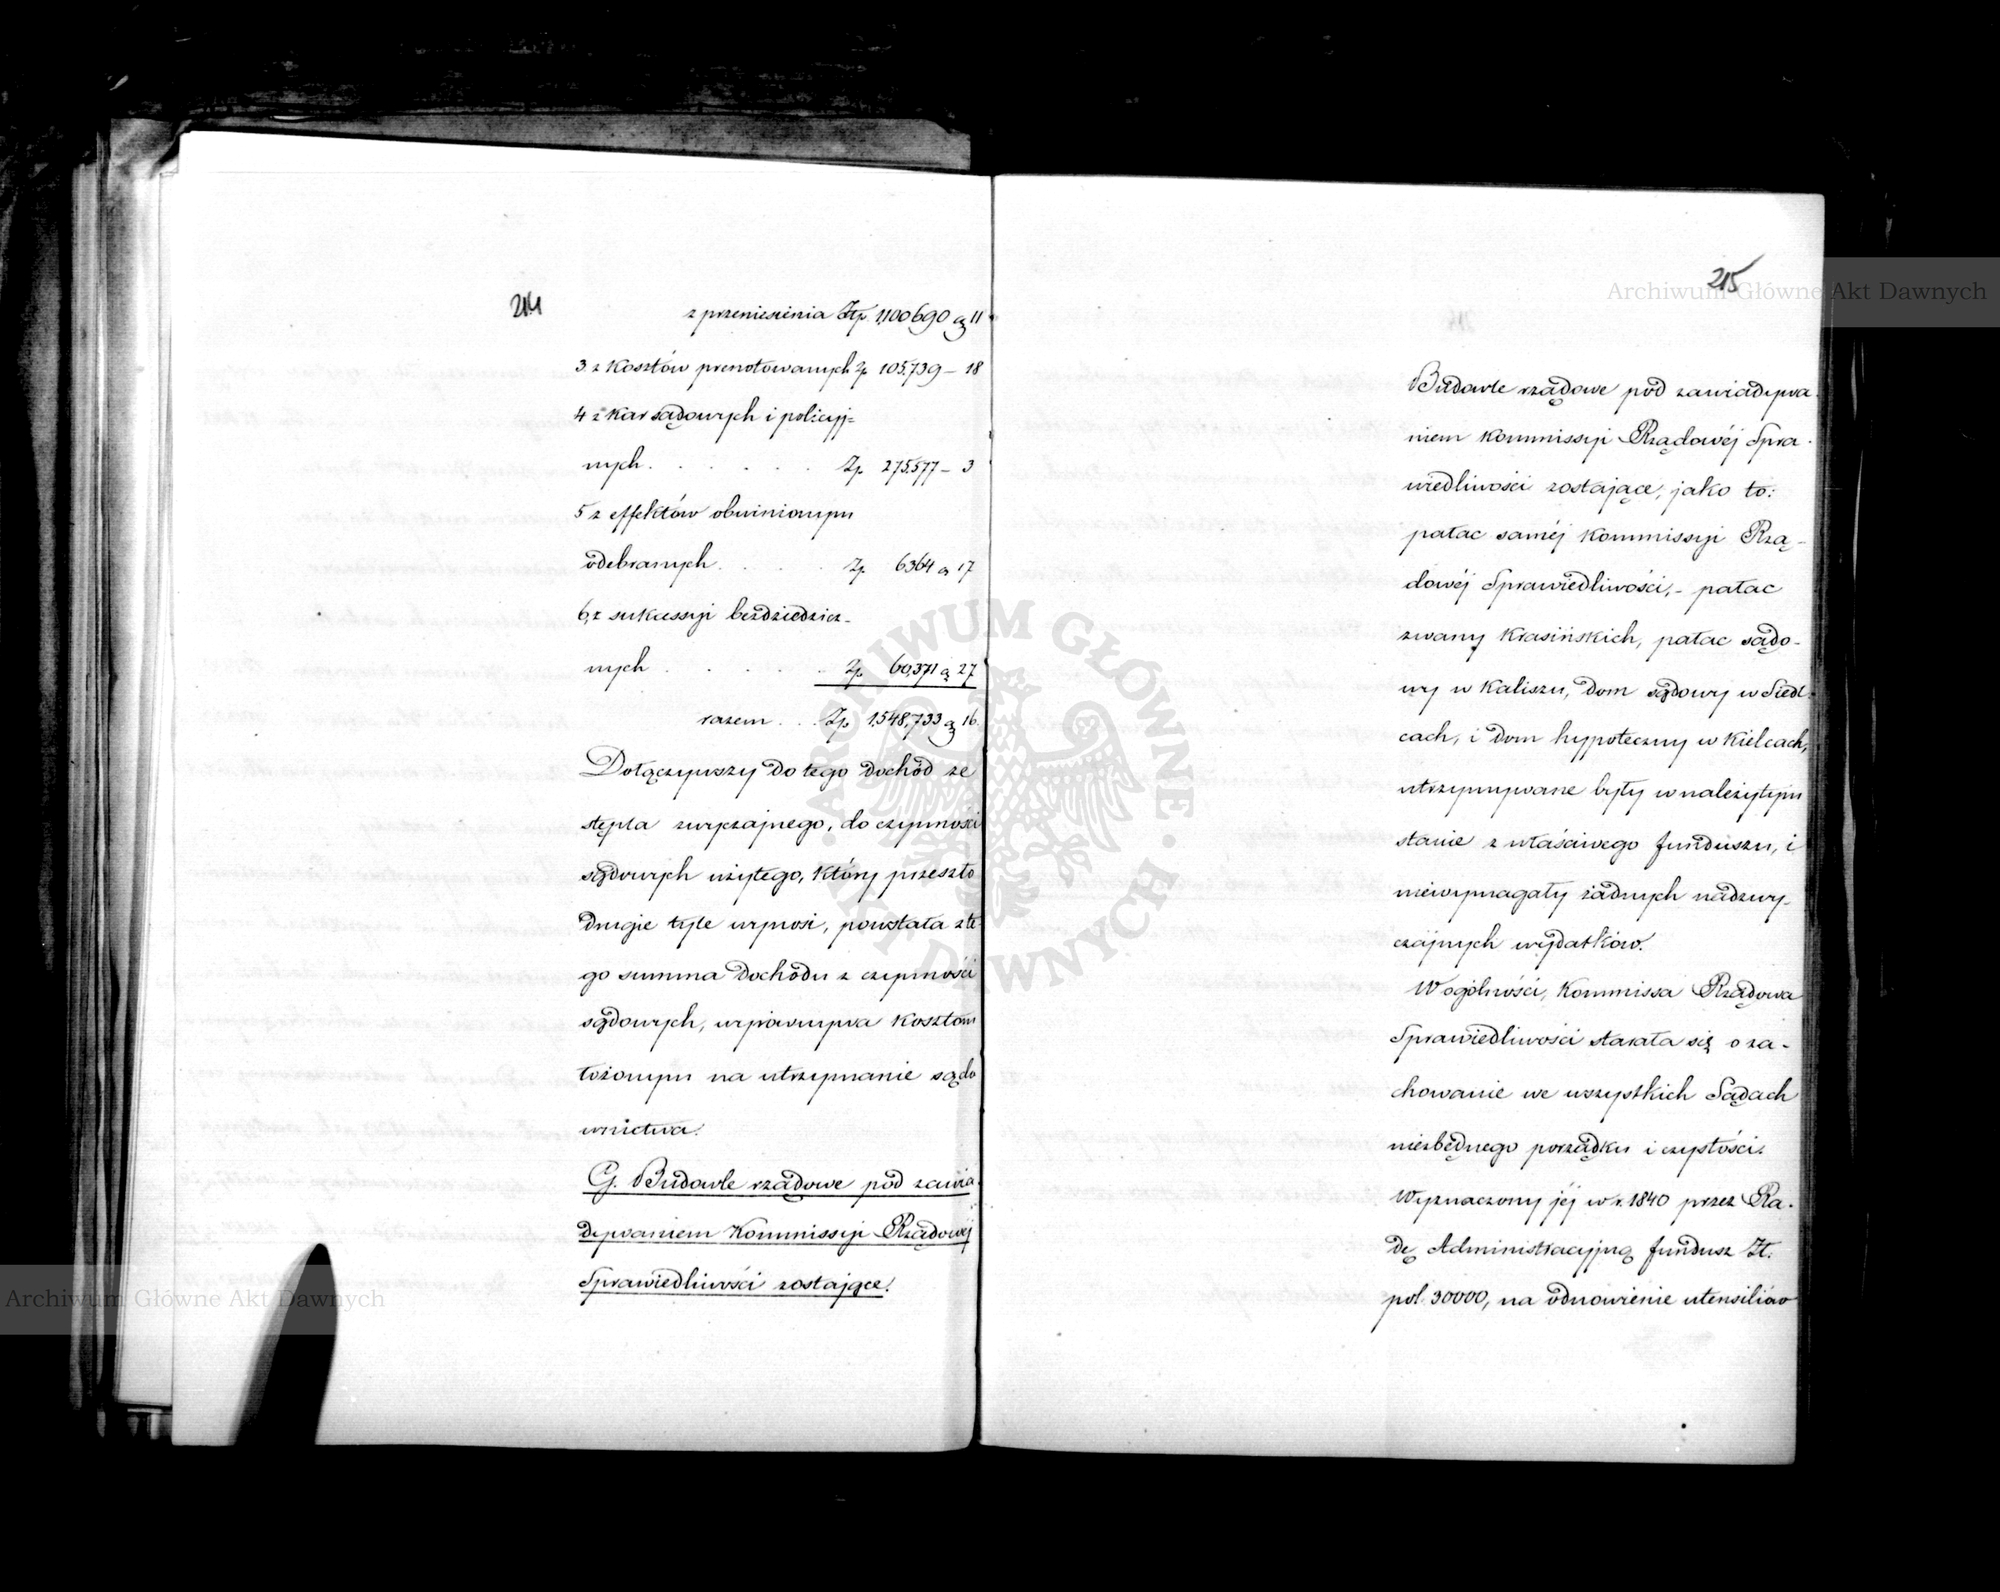 214
z przeniesienia Złp. 1,100690 gr 11
3 z Kosztów prenotowanych Zp. 105,739 – 18
4 z Kar sądowych i policyj=
nych . . . . . . Zp. 275,577 – 3
5 z effektów obwinionym
odebranych . . . . . Zp. 6364 gr 17
6, z sukcessyi bezdziedzicz-
nych . . . . . . Zp. 60,371 gr 27
razem . . . Zp. 1,548,733 gr 16.
Dołączywszy do tego dochód ze
stępla zwyczajnego, do czynności
sądowych użytego, który przeszło
drugie tyle wynosi, powstała z te
go summa dochodu z czynności
sądowych, wyrównywa kosztom
łożonym na utrzymanie sądo
wnictwa.
G. Budowle rządowe pod zawia
dywaniem Kommissyi Rządowéj
Sprawiedliwości zostające.
215
Budowle rządowe pod zawiadywa-
niem Kommissyi Rządowéj Spra-
wiedliwości zostające, jako to:
pałac saméj Kommissyi Rzą-
dowéj Sprawiedliwości, - pałac
zwany Krasińskich, pałac sądo-
wy w Kaliszu, dom sądowy w Siedl-
cach, i dom hypoteczny w Kielcach,
utrzymywane były w należytym
stanie z właściwego funduszu, i
niewymagały żadnych nadzwy-
czajnych wydatków.
W ogólności, Kommissa Rządowa
Sprawiedliwości starała się o za-
chowanie we wszystkich Sądach
niezbędnego porządku i czystości.
Wyznaczony jéj w r. 1840 przez Ra-
dę Administracyjną fundusz Zł.
pol. 30000, na odnowienie utensiliów
Archiwum Główne Akt Dawnych
Archiwum Główne Akt Dawnych
ARCHIWUM GŁÓWNE AKT DAWNYCH